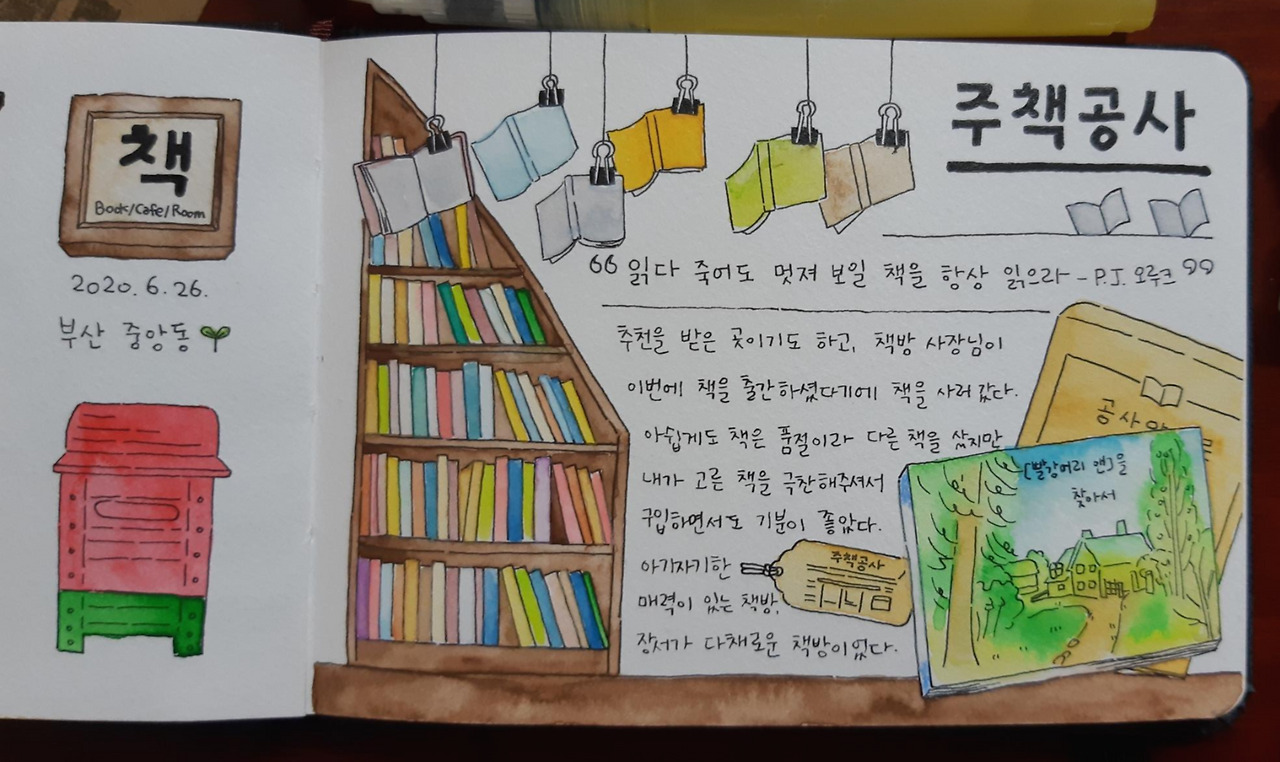 책
Book/Cafe/Room
2020. 6. 26.
부산 중앙동
주책공사
“ 읽다 죽어도 멋져 보일 책을 항상 읽으라 - P.J. 오루크 ”
추천을 받은 곳이기도 하고, 책방 사장님이
이번에 책을 출간하셨다기에 책을 사러 갔다.
아쉽게도 책은 품절이라 다른 책을 샀지만
내가 고른 책을 극찬해주셔서
구입하면서도 기분이 좋았다.
아기자기한
매력이 있는 책방,
장서가 다채로운 책방이었다.
주책공사
공사
[빨강머리 앤]을
찾아서